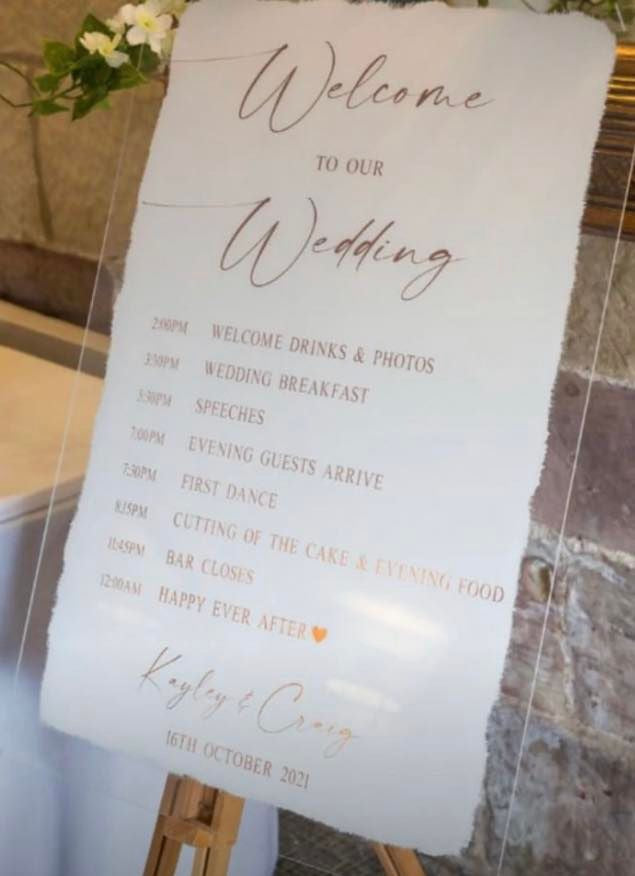 Welcome
TO OUR
Wedding
2:00PM WELCOME DRINKS & PHOTOS
3:30PM WEDDING BREAKFAST
5:30PM SPEECHES
7:00PM EVENING GUESTS ARRIVE
7:30PM FIRST DANCE
8:15PM CUTTING OF THE CAKE & EVENING FOOD
11:45PM BAR CLOSES
12:00AM HAPPY EVER AFTER🧡
Kayley & Craig
16TH OCTOBER 2021